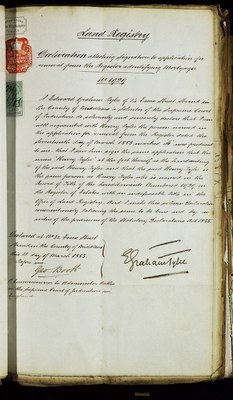 Land Registry
Declaration attesting signature to application for
removal from the Register, identifying Mortgage
No 1029
I Edward Graham Pyke of 14 Street Strand in
the County of Middlesex a Solicitor of the Supreme Court
of Judicature do solemnly and sincerely declare that I am
well acquainted with Henry Pyke the person named in
the application for removal from the Register dated the
day of March 1883 marked A now produced
to me. That I
name "Henry Pyke" at the foot thereof is the handwriting
of the said Henry Pyke and that the said Henry Pyke is
the same person as Henry Pyke who is named on the
Record of Title of the
the Register of Estates with an Title in the
Office of Land Registry. And I make this solemn Declaration
conscientiously believing the same to be true and by
virtue of the provisions of the Statutory Declarations Act 1835
Declared at No 22 Street
Strand in the County of Middlesex
this 21 day of March 1883.
Before me
Geo Booth
A Commissioner to Administer Oaths
in the Supreme Court of Judicature in
England
EGraham Pyke